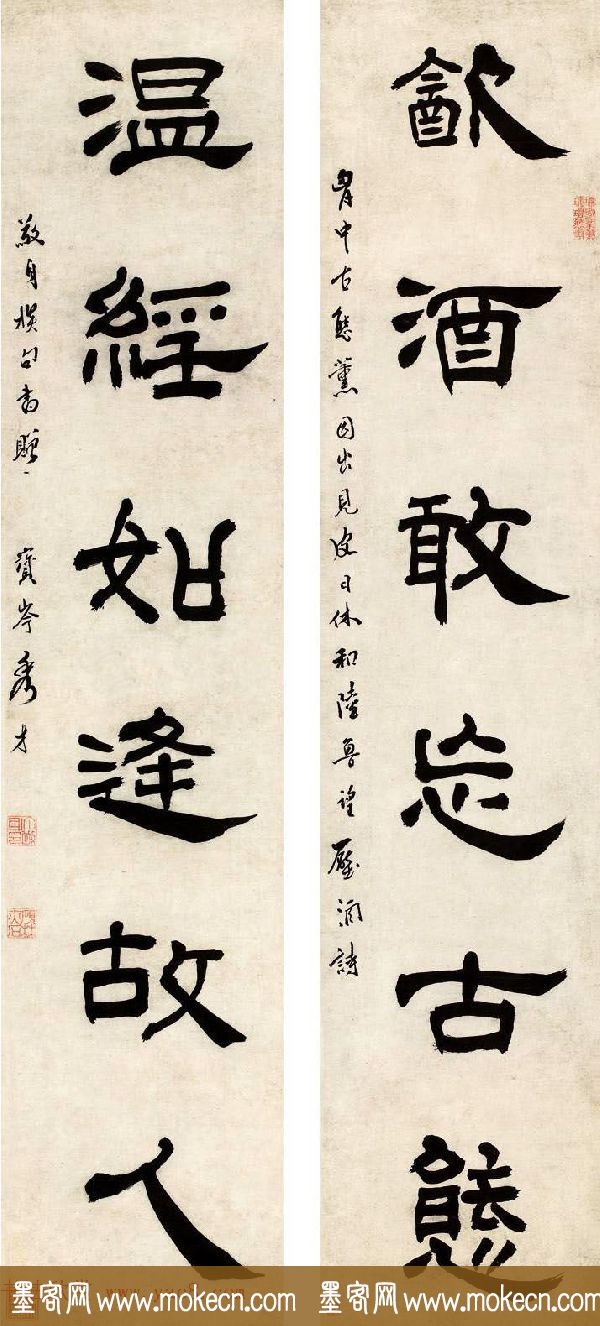 歙酒敢忘古態
胷中古態薰因出見皮日休和陸魯望壓酒詩
温經如逢故人
敬身撰句書贈
寶岑秀才
墨客网 www.mokecn.com
墨客网 www.mokecn.com